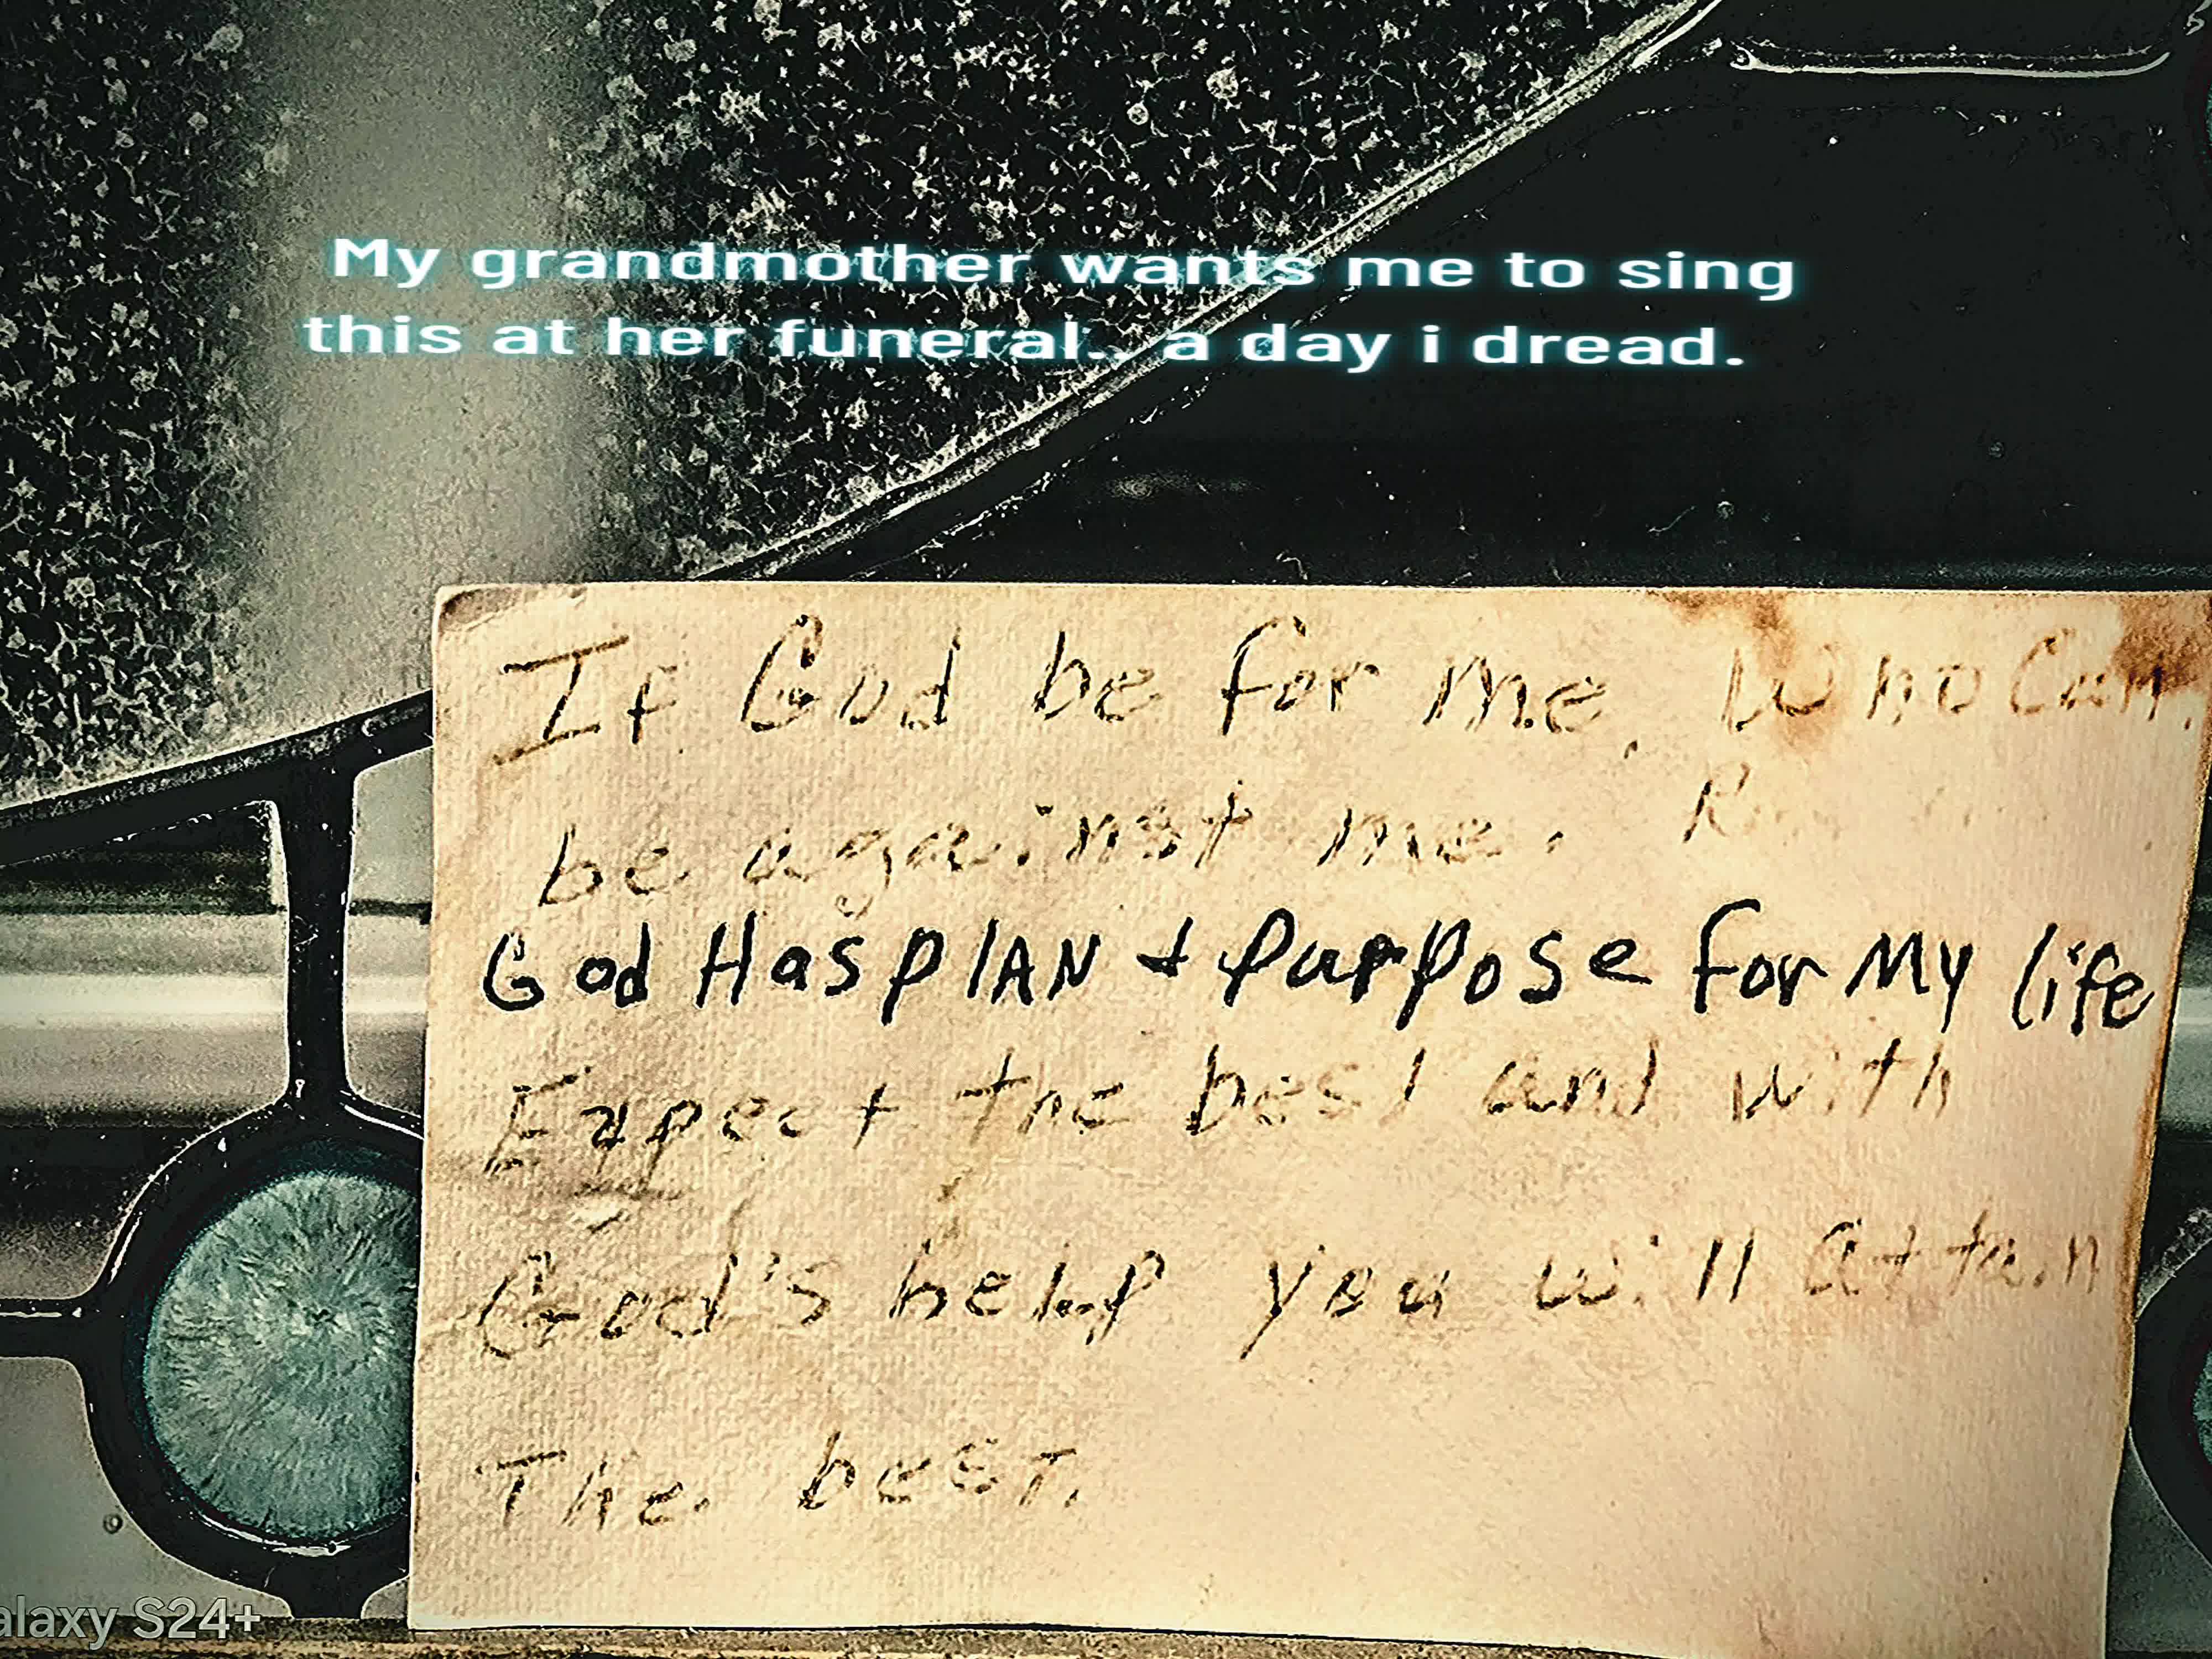 My grandmother wants me to sing
this at her funeral.. a day i dread.
If God be for me, Who Can
be against me.
God Has plAN + Purpose For My life
Expect the best and with
God's help you will attain
The best.
alaxy S24+